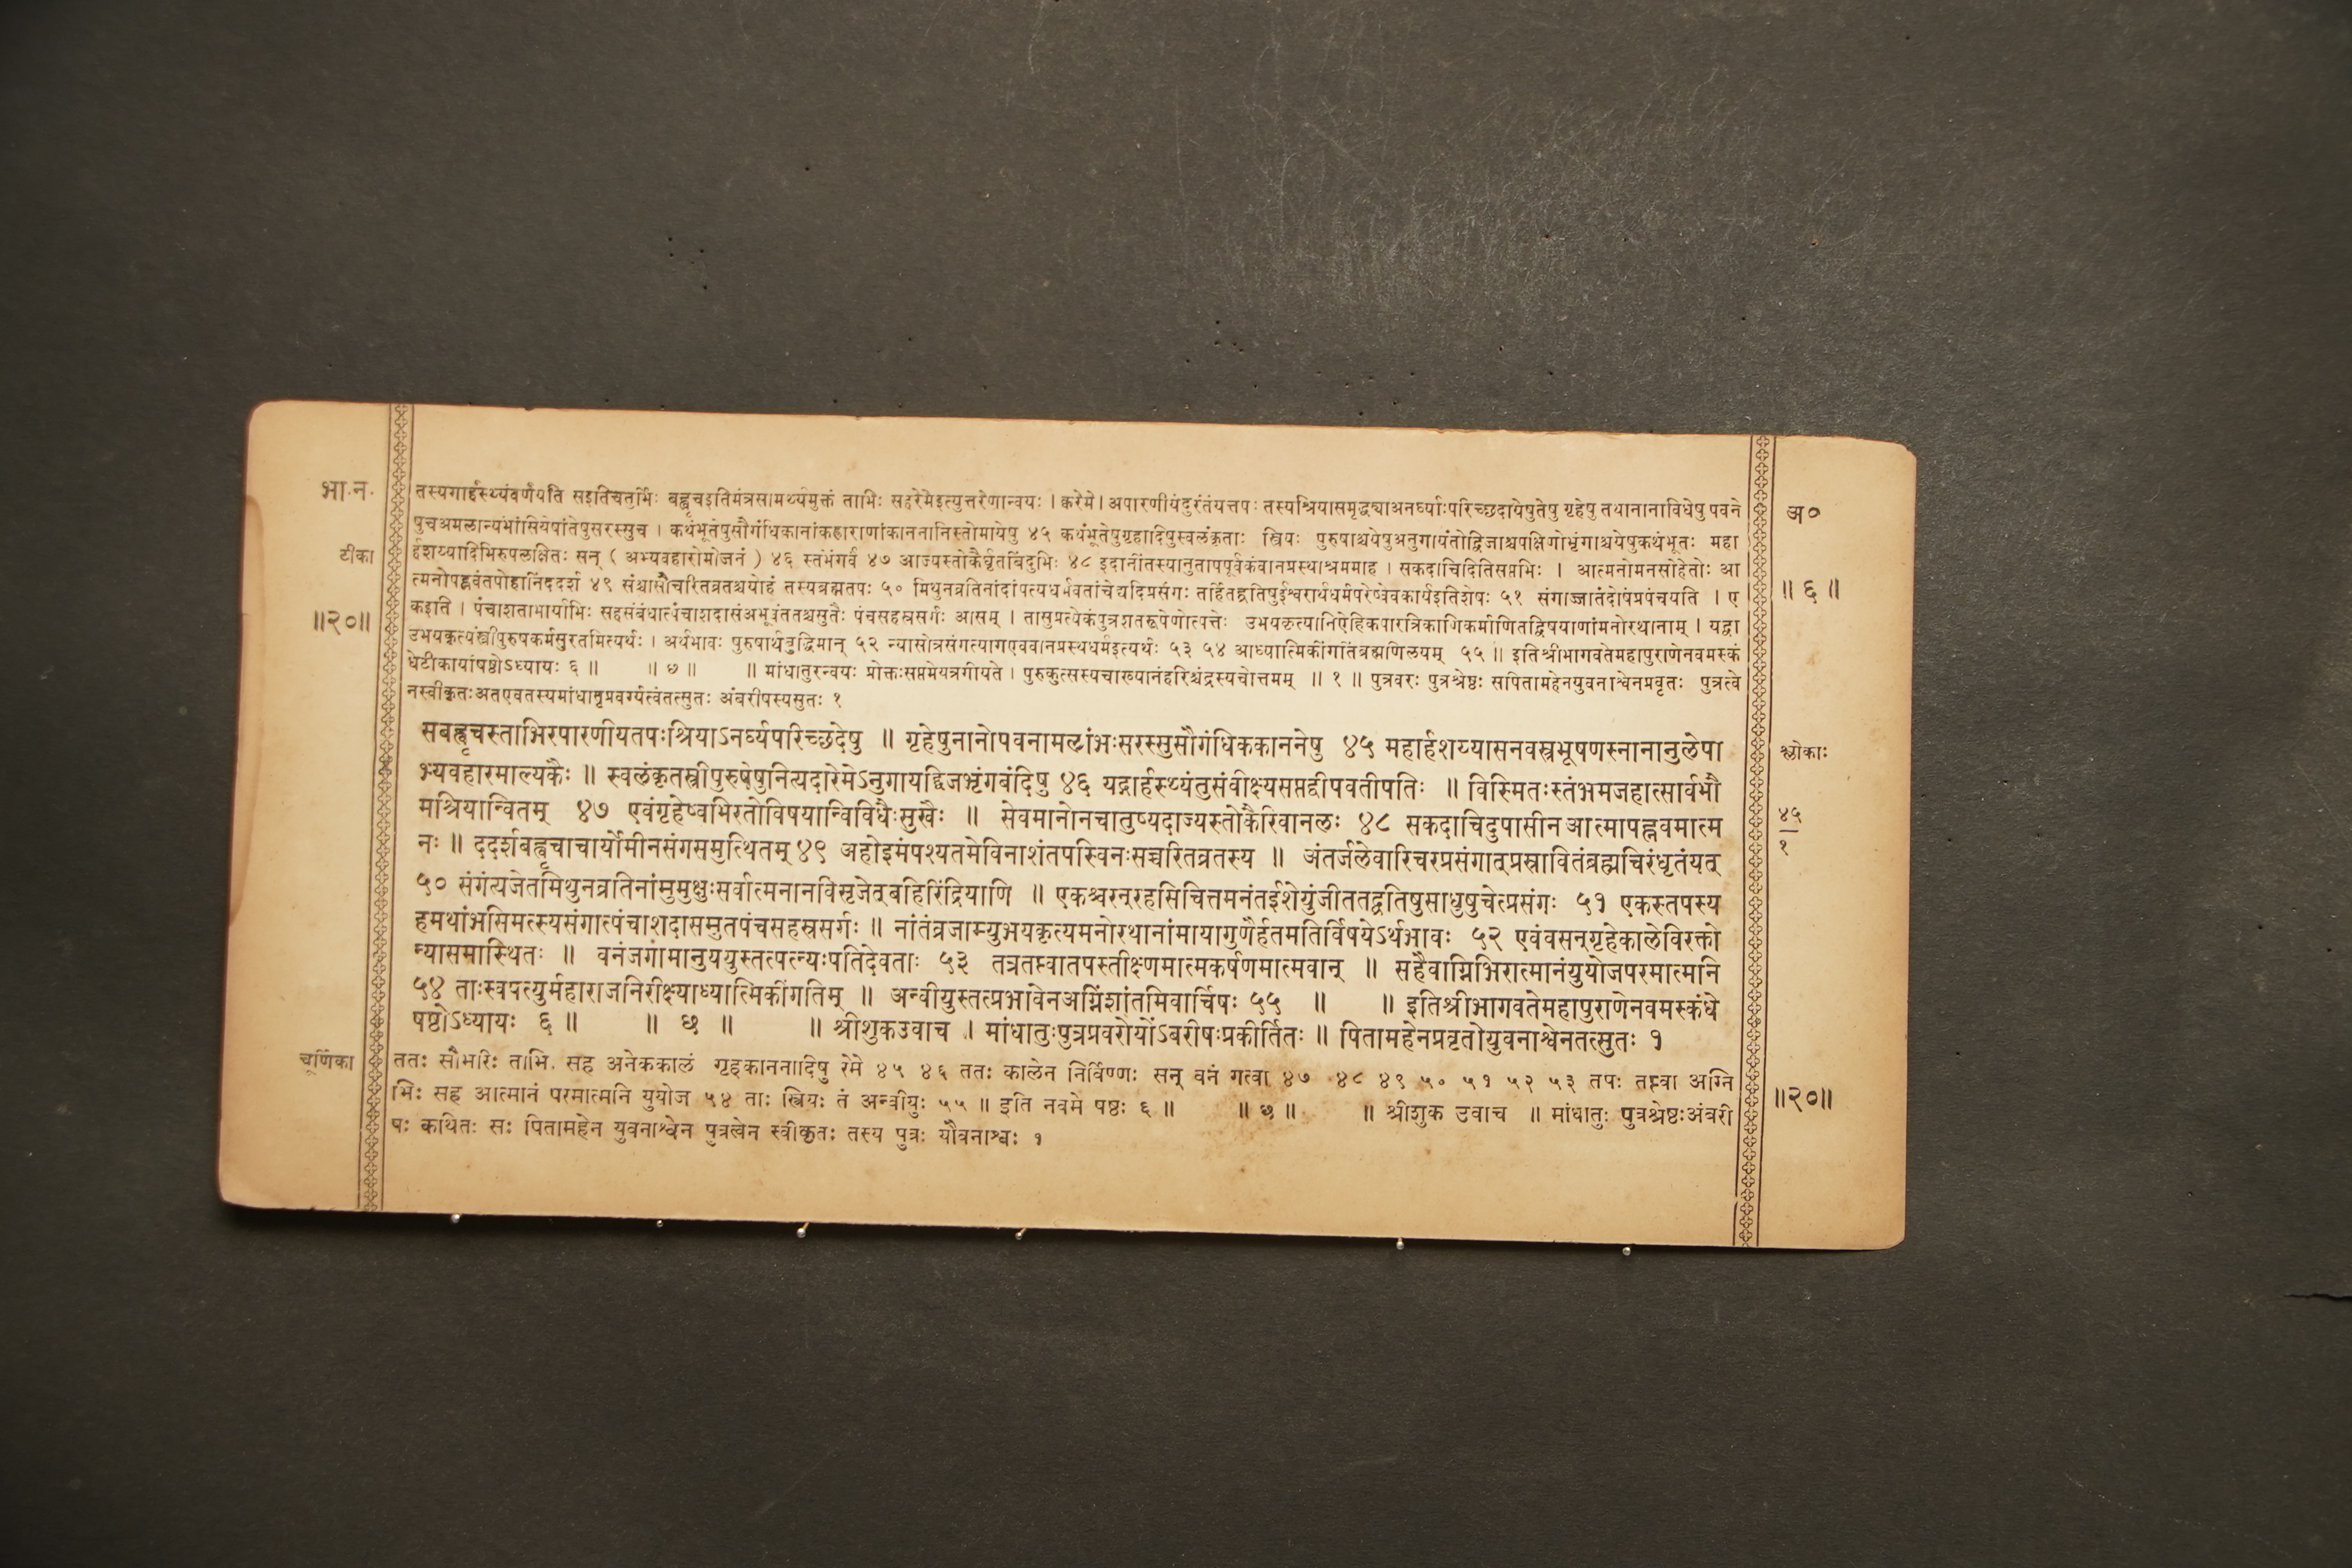 भा.न.
टीका
॥२०॥
तस्यगार्हस्थ्यंवर्णयति सइतिचतुर्भिः बह्वृचइतिमंत्रसामर्थ्यमुक्तं ताभिः सहरेमेइत्युत्तरेणान्वयः । क्वरेमे। अपारणीयंदुरंतंयत्तपः तस्यश्रियासमृद्ध्याअनर्घ्याःपरिच्छदायेषुतेषु गृहेषु तथानानाविधेषु पवने
षुचअमलान्यंभांसियेषांतेषुसरस्सुच । कथंभूतेषुसौगंधिकानांकह्लाराणांकाननानिस्तोमायेषु ४५ कथंभूतेषुगृहादिषुस्वलंकृताः स्त्रियः पुरुषाश्चयेषुअनुगायंतोद्विजाश्चपक्षिणोभृंगाश्चयेषुकथंभूतः महा
र्हशय्यादिभिरुपलक्षितः सन् ( अभ्यवहारोभोजनं ) ४६ स्तंभंगर्वं ४७ आज्यस्तोकैर्घृतबिंदुभिः ४८ इदानींतस्यानुतापपूर्वकंवानप्रस्थाश्रममाह । सकदाचिदितिसप्तभिः । आत्मनोमनसोहेतोः आ
त्मनोपह्नवंतपोहानिंददर्श ४९ संश्चासौचरितव्रतश्चयोहं तस्यब्रह्मतपः ५० मिथुनव्रतिनांदांपत्यधर्मवतांचेद्यदिप्रसंगः तर्हितद्व्रतिषुईश्वरार्थधर्मपरेष्वेवकार्यइतिशेषः ५१ संगाज्जातंदोषंप्रपंचयति । ए
कइति । पंचाशताभार्याभिः सहसंबंधात्पंचाशदासंअभूवंततश्चसुतैः पंचसहस्रसर्गः आसम् । तासुप्रत्येकंपुत्रशतरूपेणोत्पत्तेः उभयकृत्यानिऐहिकपारत्रिकाणिकर्माणितद्विषयाणांमनोरथानाम् । यद्वा
उभयकृत्यंस्त्रीपुरुषकर्मसुरतमित्यर्थः । अर्थभावः पुरुषार्थबुद्धिमान् ५२ न्यासोत्रसंगत्यागएववानप्रस्थधर्मइत्यर्थः ५३ ५४ आध्यात्मिकींगतिंब्रह्मणिलयम् ५५ ॥ इतिश्रीभागवतेमहापुराणेनवमस्कं
धेटीकायांषष्ठोऽध्यायः ६ ॥ ॥ ७ ॥ ॥ मांधातुरन्वयः प्रोक्तःसप्तमेयत्रगीयते । पुरुकुत्सस्यचाख्यानंहरिश्चंद्रस्यचोत्तमम् ॥ १ ॥ पुत्रवरः पुत्रश्रेष्ठः सपितामहेनयुवनाश्वेनप्रवृतः पुत्रत्वे
नस्वीकृतःअतएवतस्यमांधातृप्रवर्ग्यत्वंतत्सुतः अंबरीषस्यसुतः १
सबह्वृचस्ताभिरपारणीयतपःश्रियाऽनर्घ्यपरिच्छदेषु ॥ गृहेषुनानोपवनामलांभःसरस्सुसौगंधिककाननेषु ४५ महार्हशय्यासनवस्त्रभूषणस्नानानुलेपा
भ्यवहारमाल्यकैः ॥ स्वलंकृतस्त्रीपुरुषेषुनित्यदारेमेऽनुगायद्द्विजभृंगबंदिषु ४६ यद्गार्हस्थ्यंतुसंवीक्ष्यसप्तद्वीपवतीपतिः ॥ विस्मितःस्तंभमजहात्सार्वभौ
मश्रियान्वितम् ४७ एवंगृहेष्वभिरतोविषयान्विविधैःसुखैः ॥ सेवमानोनचातुष्यदाज्यस्तोकैरिवानलः ४८ सकदाचिदुपासीनआत्मापह्नवमात्म
नः ॥ ददर्शबह्वृचाचार्योमीनसंगसमुत्थितम् ४९ अहोइमंपश्यतमेविनाशंतपस्विनःसच्चरितव्रतस्य ॥ अंतर्जलेवारिचरप्रसंगात्प्रस्रावितंब्रह्मचिरंधृतंयत्
५० संगंत्यजेतमिथुनव्रतिनांमुमुक्षुःसर्वात्मनानविसृजेद्बहिरिंद्रियाणि ॥ एकश्चरन्‍रहसिचित्तमनंतईशेयुंजीततद्व्रतिषुसाधुषुचेत्प्रसंगः ५१ एकस्तपस्व्य
हमथांभसिमत्स्यसंगात्पंचाशदासमुतपंचसहस्रसर्गः ॥ नांतंव्रजाम्युभयकृत्यमनोरथानांमायागुणैर्हृतमतिर्विषयेऽर्थभावः ५२ एवंवसन्‍गृहेकालेविरक्तो
न्यासमास्थितः ॥ वनंजगामानुययुस्तत्पत्न्यःपतिदेवताः ५३ तत्रतप्त्वातपस्तीक्ष्णमात्मकर्षणमात्मवान् ॥ सहैवाग्निभिरात्मानंयुयोजपरमात्मनि
५४ ताःस्वपत्युर्महाराजनिरीक्ष्याध्यात्मिकींगतिम् ॥ अन्वीयुस्तत्प्रभावेनअग्निंशांतमिवार्चिषः ५५ ॥ ॥ इतिश्रीभागवतेमहापुराणेनवमस्कंधे
षष्ठोऽध्यायः ६ ॥ ॥ छ ॥ ॥ श्रीशुकउवाच । मांधातुःपुत्रप्रवरोयोंऽबरीषःप्रकीर्तितः ॥ पितामहेनप्रवृतोयुवनाश्वेनतत्सुतः १
चूर्णिका
ततः सौभरिः ताभिः सह अनेककालं गृहकाननादिषु रेमे ४५ ४६ ततः कालेन निर्विण्णः सन् वनं गत्वा ४७ ४८ ४९ ५० ५१ ५२ ५३ तपः तप्त्वा अग्नि
भिः सह आत्मानं परमात्मनि युयोज ५४ ताः स्त्रियः तं अन्वीयुः ५५ ॥ इति नवमे षष्ठः ६ ॥ ॥ छ ॥ ॥ श्रीशुक उवाच ॥ मांधातुः पुत्रश्रेष्ठःअंबरी
षः कथितः सः पितामहेन युवनाश्वेन पुत्रत्वेन स्वीकृतः तस्य पुत्रः यौवनाश्वः १
अ०
॥ ६ ॥
श्लोकाः
४५
१
॥२०॥